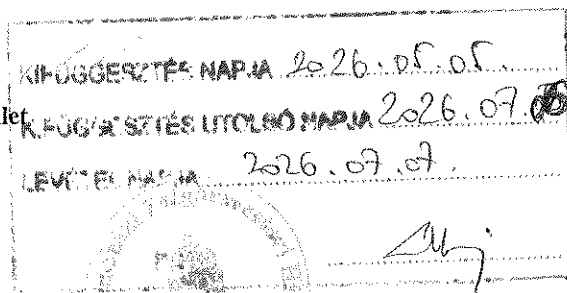 KIFÜGGESZTÉS NAPJA 2026.05.05.
let
KIFÜGGESZTÉS UTOLSÓ NAPJA 2026.07.
LEVÉTEL NAPJA 2026.07.07.